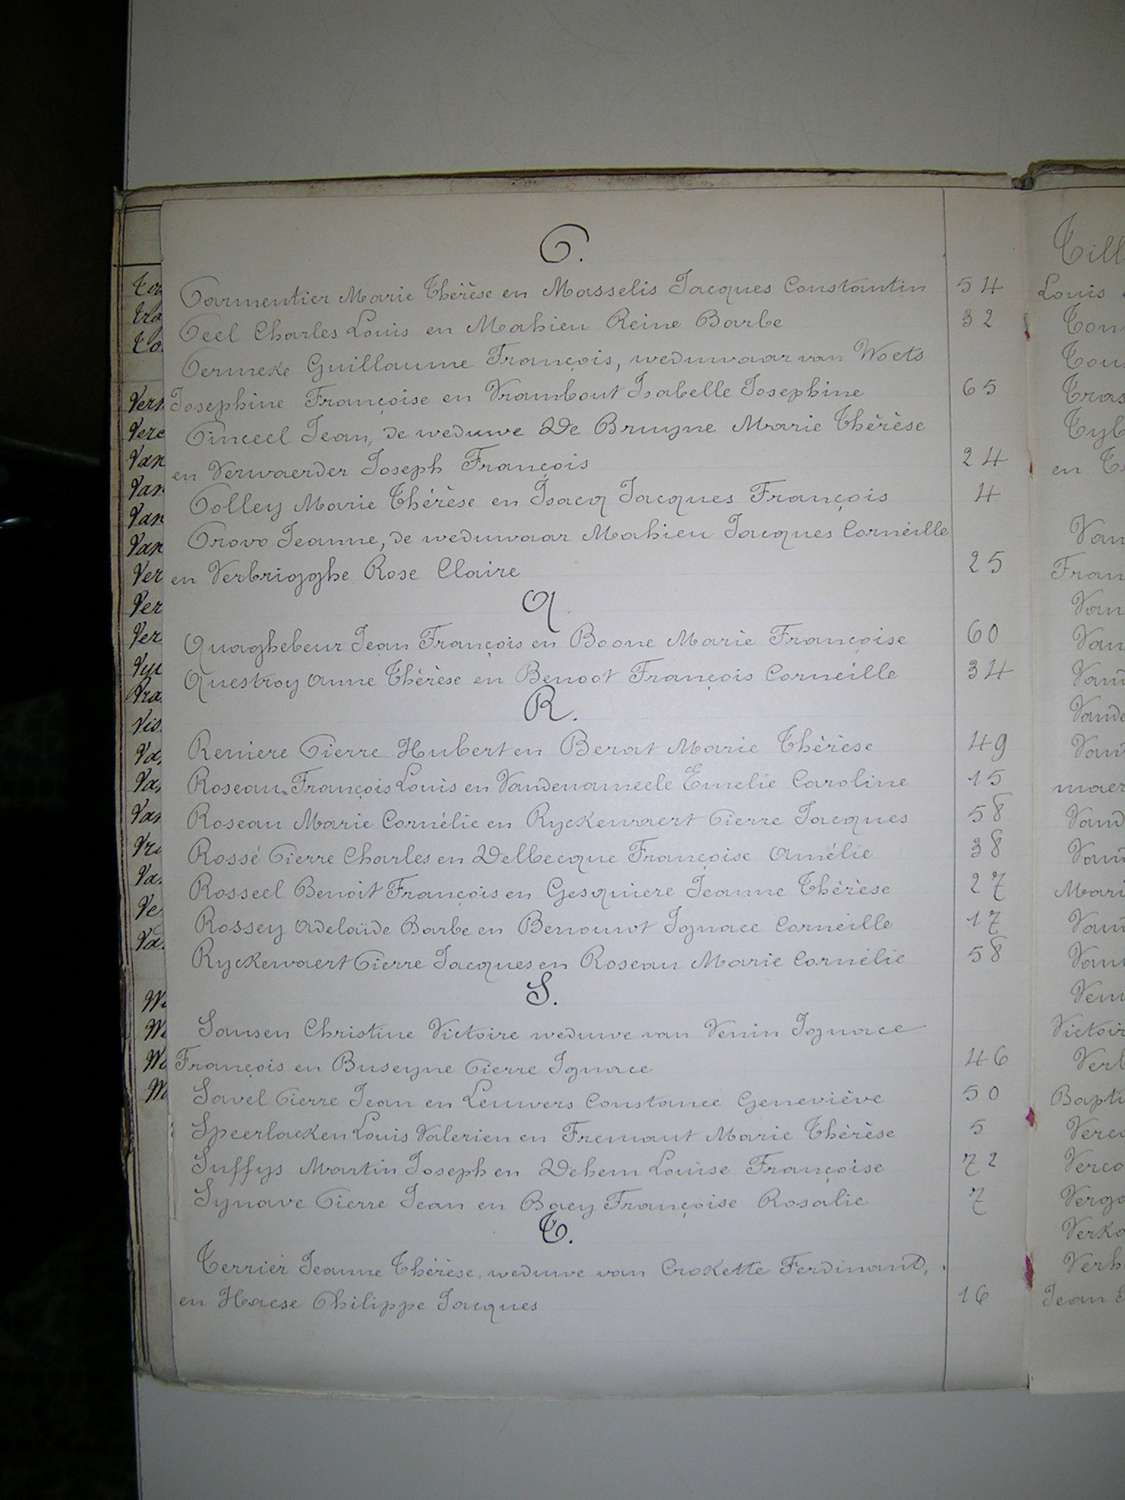 P.
Parmentier Marie Thérèse en Masselis Jacques Constantin 54
Peel Charles Louis en Mahieu Reine Barbe 32
Permeke Guillaume François, weduwaar van Woets
Josephine Françoise en Vrambout Isabelle Josephine 65
Pinceel Jean, de weduwe De Bruyne Marie Thérèse
en Verwaerder Joseph François 24
Polley Marie Thérèse en Isacq Jacques François 4
Provo Jeanne, de weduwaar Mahieu Jacques Corneille
en Verbrigghe Rose Claire 25
Q
Quaghebeur Jean François en Boone Marie Françoise 60
Questroy Anne Thérèse en Benoot François Corneille 34
R.
Reniere Pierre Hubert en Berat Marie Thérèse 49
Roseau François Louis en Vandenameele Emelie Caroline 15
Roseau Marie Cornélie en Ryckewaert Pierre Jacques 58
Rossé Pierre Charles en Delbecque Françoise Amélie 38
Rosseel Benoit François en Gesquiere Jeanne Thérèse 27
Rossey Adelaïde Barbe en Benouwt Ignace Corneille 17
Ryckewaert Pierre Jacques en Roseau Marie Cornélie 58
S.
Sansen Christine Victoire weduwe van Venin Ignace
François en Buseyne Pierre Ignace 46
Savel Pierre Jean en Leuwers Constance Geneviève 50
Speerlaeken Louis Valerien en Fremaut Marie Thérèse 5
Suffys Martin Joseph en Dehem Louise Françoise 72
Synave Pierre Jean en Baey Françoise Rosalie 7
T.
Terrier Jeanne Thérèse, weduwe van Crokette Ferdinand,
en Haese Philippe Jacques 16